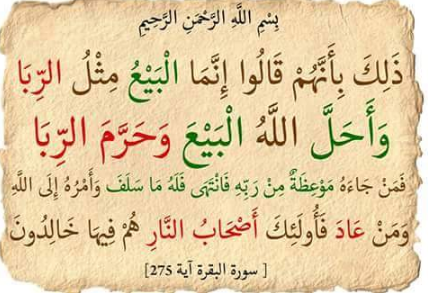 بِسْمِ اللَّهِ الرَّحْمَنِ الرَّحِيمِ
ذَلِكَ بِأَنَّهُمْ قَالُوا إِنَّمَا الْبَيْعُ مِثْلُ الرِّبَا
وَأَحَلَّ اللَّهُ الْبَيْعَ وَحَرَّمَ الرِّبَا
فَمَنْ جَاءَهُ مَوْعِظَةٌ مِنْ رَبِّهِ فَانْتَهَى فَلَهُ مَا سَلَفَ وَأَمْرُهُ إِلَى اللَّهِ
وَمَنْ عَادَ فَأُولَئِكَ أَصْحَابُ النَّارِ هُمْ فِيهَا خَالِدُونَ
[ سورة البقرة آية 275]